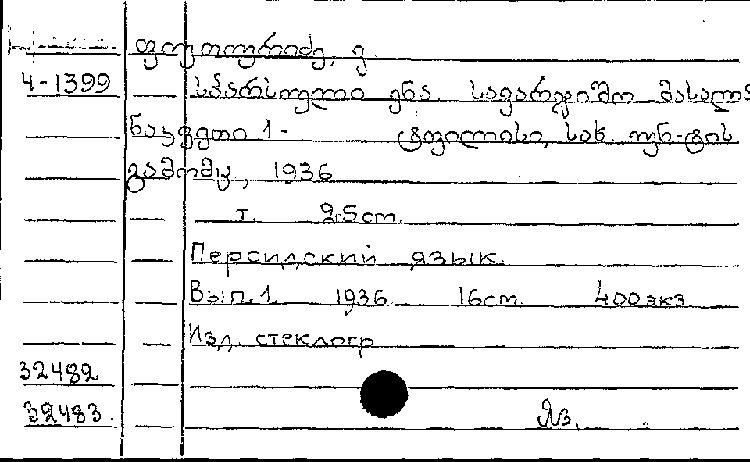 ფუთურიძე, ვ.
4-1399 სპარსული ენა სავარჯიშო მასალა
ნაკვეთი 1- ტფილისი, სახ. უნ-ტის
გამომც, 1936
т. 25 cm.
Персидский язык.
Вып.1. 1936 16 cm. 400 экз
Изд. стеклогр
32482
32483. Яз.